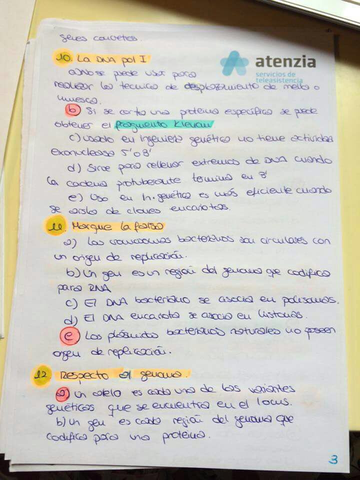 seres correctos
10 La DNA pol I
a) No se puede usar para
realizar la técnica de desplazamiento de mella o
muesca.
b) Si se corta una proteína específica se puede
obtener el fragmento Klenow
c) Usado en ingeniería genética no tiene actividad
exonucleasa 5' o 3'
d) Sirve para rellenar extremos de DNA cuando
la cadena protuberante termina en 3'
e) Uso en In. genética es más eficiente cuando
se aísla de clones eucariotas.
11 Marque la falsa
a) Los cromosomas bacterianos son circulares con
un origen de replicación.
b) Un gen es un región del genoma que codifica
para RNA
c) El DNA bacteriano se asocia en poliaminas.
d) El DNA eucariota se asocia en histonas
e) Los plásmidos bacterianos naturales no poseen
origen de replicación.
12 Respecto al genoma
a) Un alelo es cada una de las variantes
genéticas que se encuentra en el locus.
b) Un gen es cada región del genoma que
codifica para una proteína.
atenzia
servicios de
teleasistencia
3